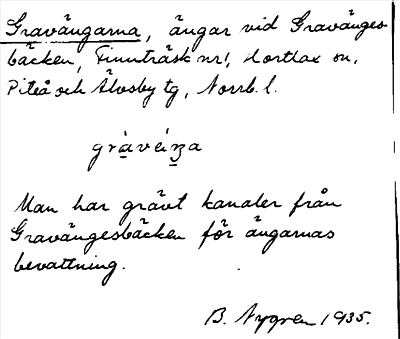 Gravängarna, ängar vid Gravänges-
bäcken, Finnträsk nr 1, Hortlax sn,
Piteå och Älvsby tg, Norrb. l.
gràvéi̯ŋa
Man har grävt kanaler från
Gravängesbäcken för ängarnas
bevattning.
B. Nygren 1935.